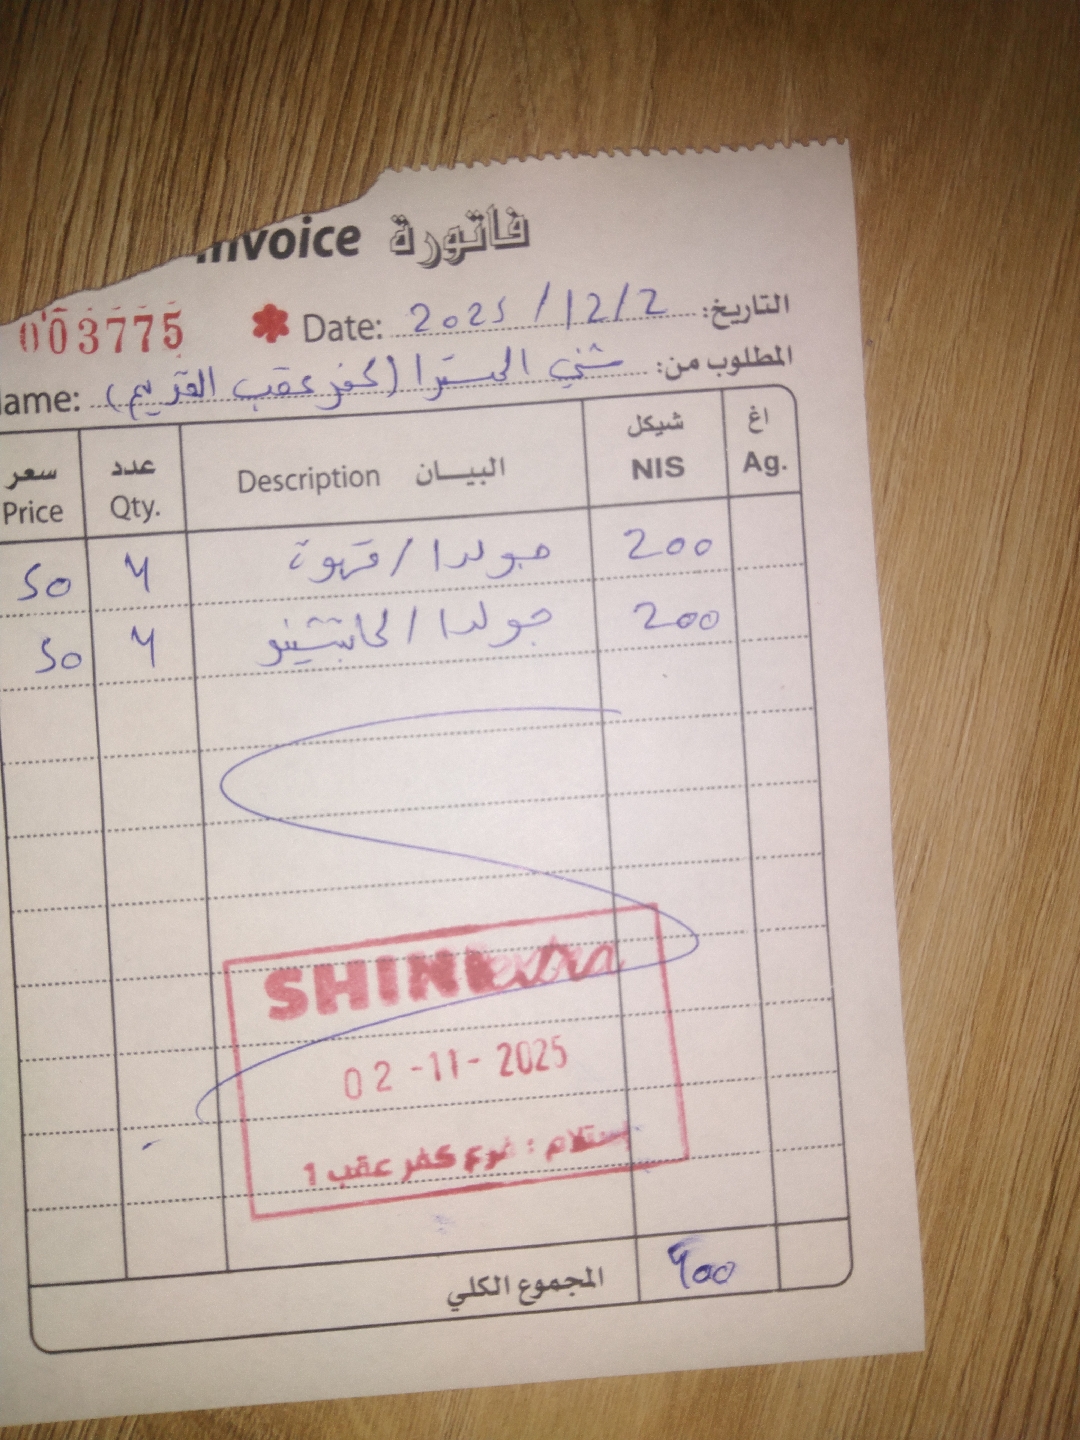 Invoice فاتورة
003775 Date: 2025/12/2 التاريخ:
ame: شني اكسترا (كفر عقب القديم) المطلوب من:
سعر عدد البيـــان شيكل اغ
Price Qty. Description NIS Ag.
50 4 جولدا / قهوة 200
50 4 جولدا / كابتشينو 200
SHINI extra
02-11-2025
استلام : فرع كفر عقب 1
المجموع الكلي 400